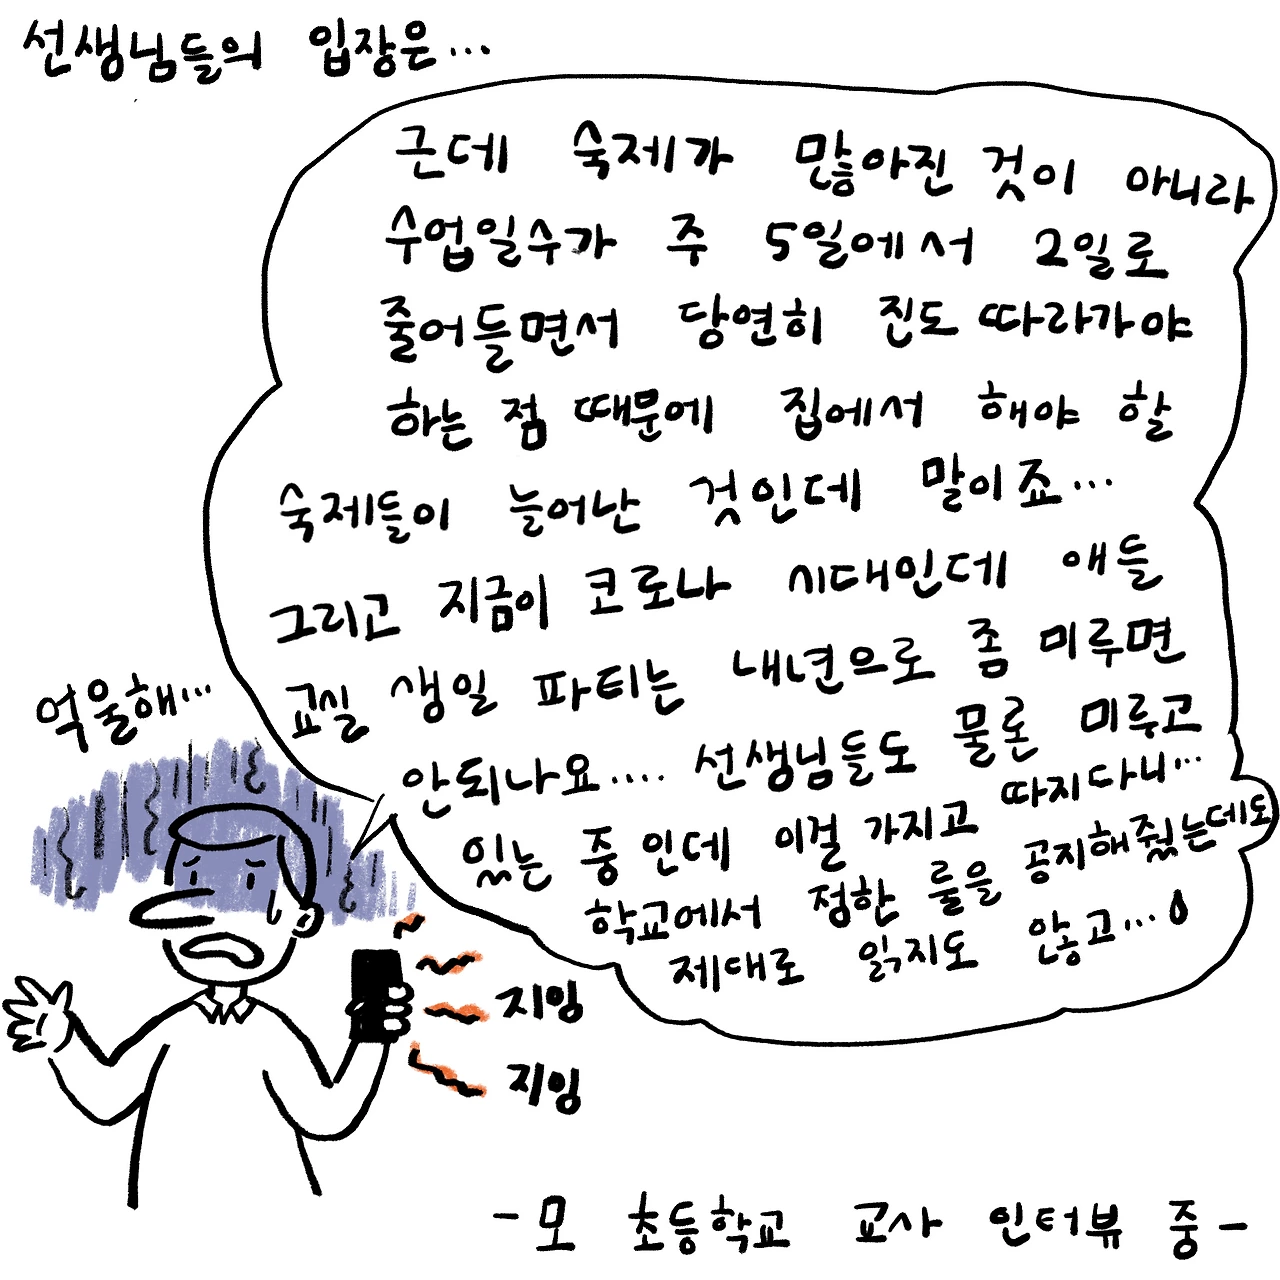 선생님들의 입장은...
근데 숙제가 많아진 것이 아니라
수업일수가 주 5일에서 2일로
줄어들면서 당연히 진도 따라가야
하는 점 때문에 집에서 해야 할
숙제들이 늘어난 것인데 말이죠...
그리고 지금이 코로나 시대인데 애들
교실 생일 파티는 내년으로 좀 미루면
안되나요.... 선생님들도 물론 미루고
있는 중인데 이걸 가지고 따지다니...
학교에서 정한 룰을 공지해줬는데도
제대로 읽지도 않고...
억울해...
지잉
지잉
-모 초등학교 교사 인터뷰 중-